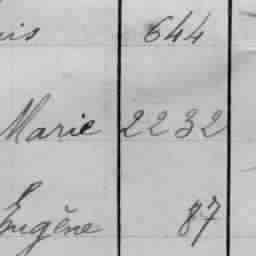 644
Marie 2232
Eugène 87